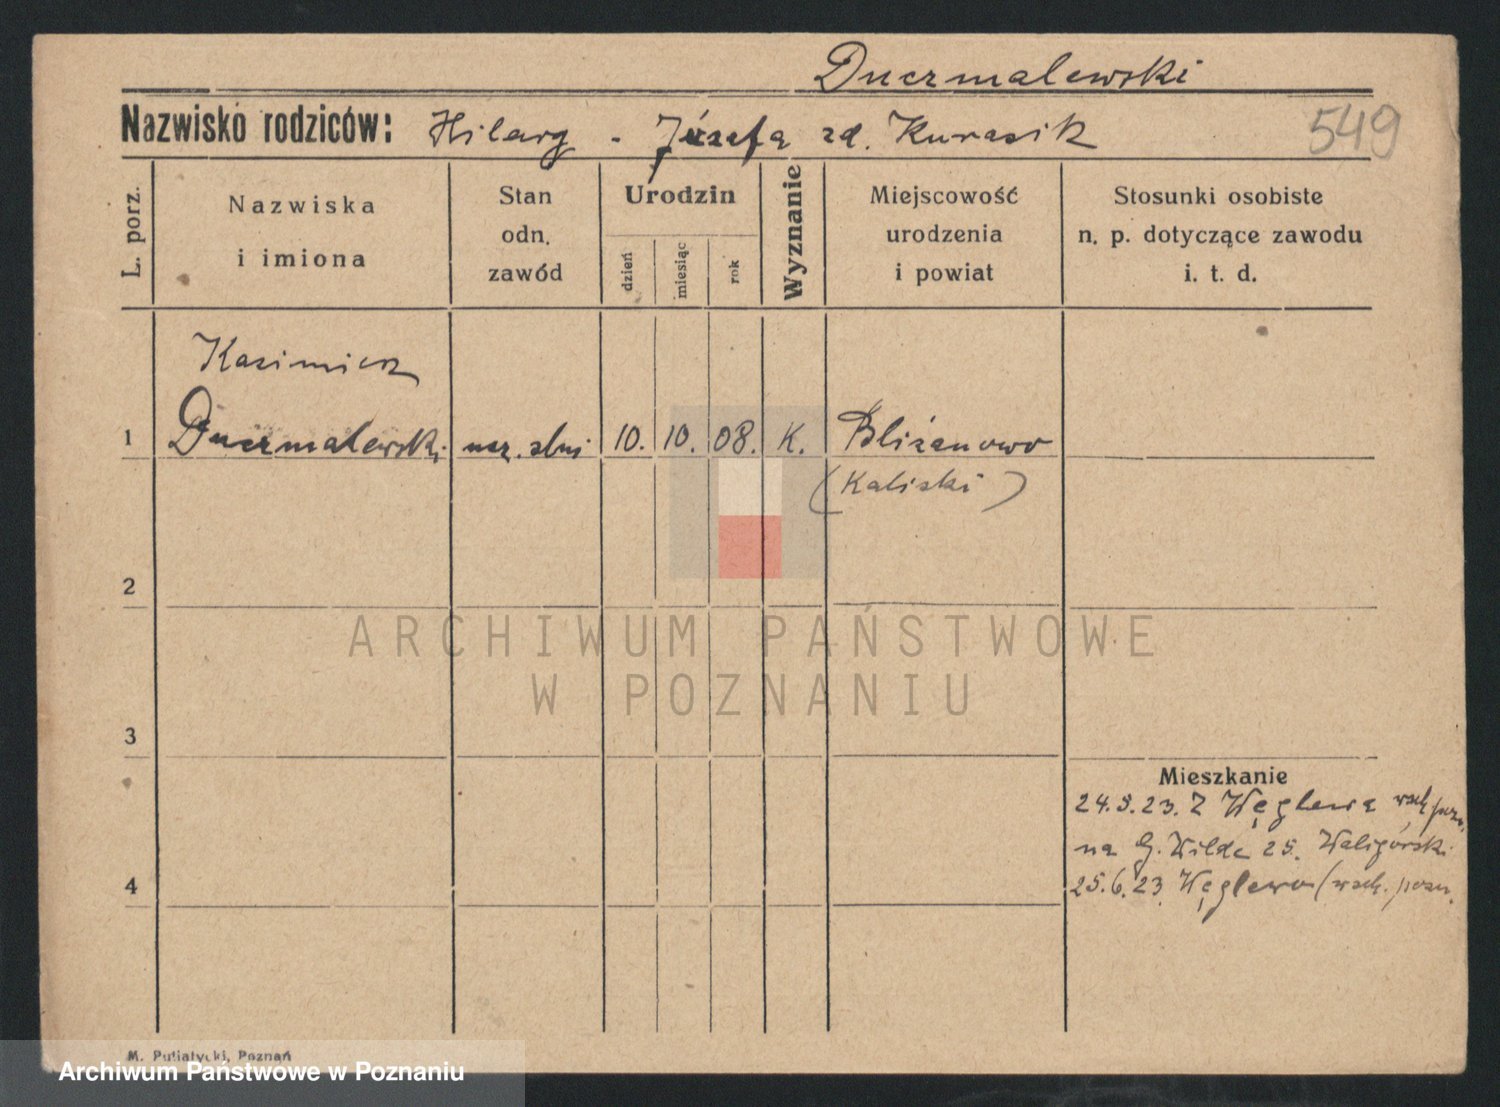 Duczmalewski
Nazwisko rodziców: Hilary - Józefa zd. Kurasik
549
L. porz.
Nazwiska
i imiona
Stan
odn.
zawód
Urodzin
dzień
miesiąc
rok
Wyznanie
Miejscowość
urodzenia
i powiat
Stosunki osobiste
n. p. dotyczące zawodu
i. t. d.
Kazimierz
1 Duczmalewski ucz. 10. 10. 08. K. Bliżanowo
(Kaliski)
2
ARCHIWUM PAŃSTWOWE
W POZNANIU
3
Mieszkanie
24.5.23. Z Węglewa wsch. pozn.
na G. Wilda 25. Waligórski
4
25.6.23. Węglewo (wsch. pozn.
M. Putiatycki, Poznań
Archiwum Państwowe w Poznaniu